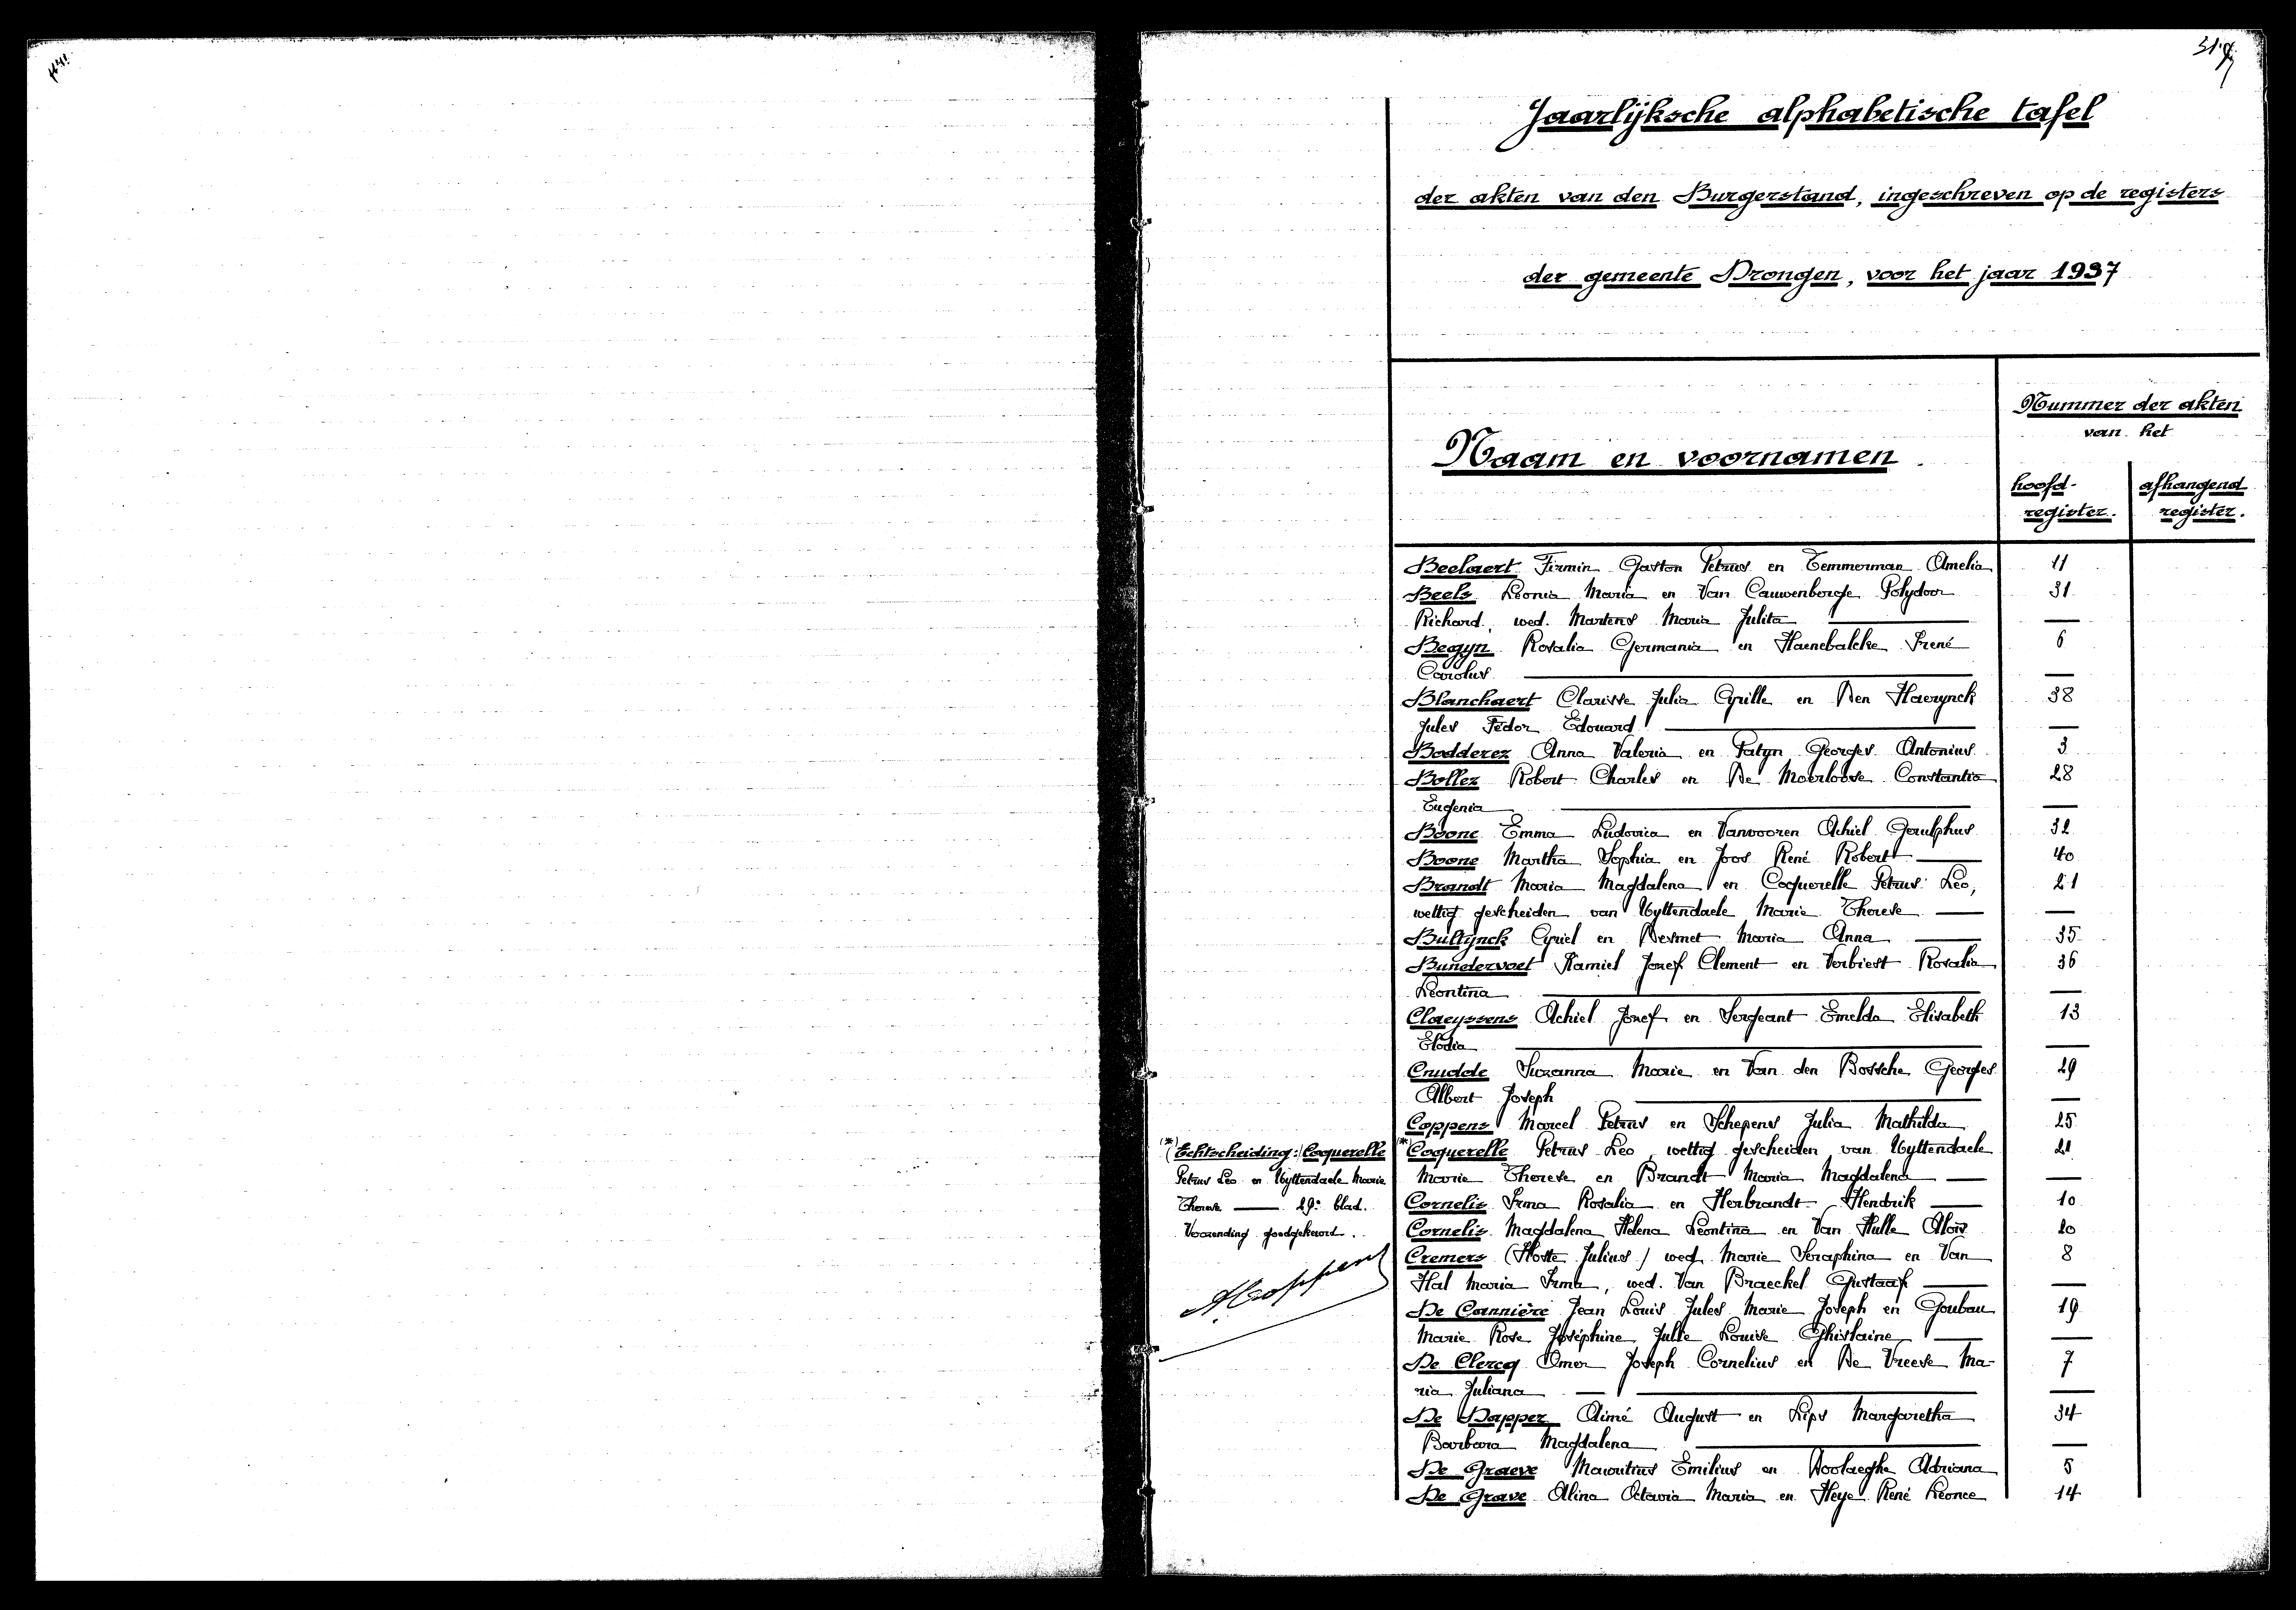 Jaarlijksche alphabetische tafel
der akten van den Burgerstand, ingeschreven op de registers
der gemeente Drongen, voor het jaar 1937
Naam en voornamen
Nummer der akten
van het
hoofd-
register.
afhangend
register.
Beelaert Firmin Gaston Petrus en Temmerman Amelia 11
Beels Leonia Maria en Van Cauwenberge Polydoor 31
Richard, wed. Martens Maria Julita —
Begyn Rosalia Germania en Haenebalcke Irené 6
Carolus —
Blanchaert Clarisse Julia Cyrille en Den Haerynck 38
Jules Fédor Edouard —
Bodderez Anna Valeria en Patyn Georges Antonius 3
Bollez Robert Charles en De Moerloose Constantia 28
Eugenia —
Boone Emma Ludovica en Vanvooren Achiel 32
Boone Martha Sophia en Joos René Robert — 40
Brandt Maria Magdalena en Coquerelle Petrus Leo, 21
wettig gescheiden van Uyttendaele Marie Therese — —
Bultynck Cyriel en Desmet Maria Anna — 35
Bundervoet Kamiel Jozef Clement en Verbiest Rosalia 36
Leontina —
Claeyssens Achiel Jozef en Sergeant Emelda Elisabeth 13
Elodia —
Cnudde Suzanna Marie en Van den Bossche Georges 29
Albert Joseph —
Coppens Marcel Petrus en Schepens Julia Mathilda 25
(*) Coquerelle Petrus Leo, wettig gescheiden van Uyttendaele 21
Marie Therese en Brandt Maria Magdalena — —
Cornelis Irma Rosalia en Herbrandt Hendrik — 10
Cornelis Magdalena Helena Leontina en Van Hulle Aloïs 20
Cremers (Hoste Julius) wed. Marie Seraphina en Van 8
Hal Maria Irma, wed. Van Braeckel Gustaaf — —
De Cannière Jean Louis Jules Marie Joseph en Goubau 19
Marie Rose Joséphine Julie Louise Ghislaine — —
De Clercq Omer Joseph Cornelius en De Vreese Ma- 7
ria Juliana —
De Dapper Aimé August en Lips Margaretha 34
Barbara Magdalena —
De Graeve Mauritius Emilius en Doolaeghe Adriana 5
De Grave Alina Octavia Maria en Heye René Leonce 14
(*) Echtscheiding: Coquerelle
Petrus Leo en Uyttendaele Marie
Therese — 29e blad.
Voorzending goedgekeurd.
A Coppens